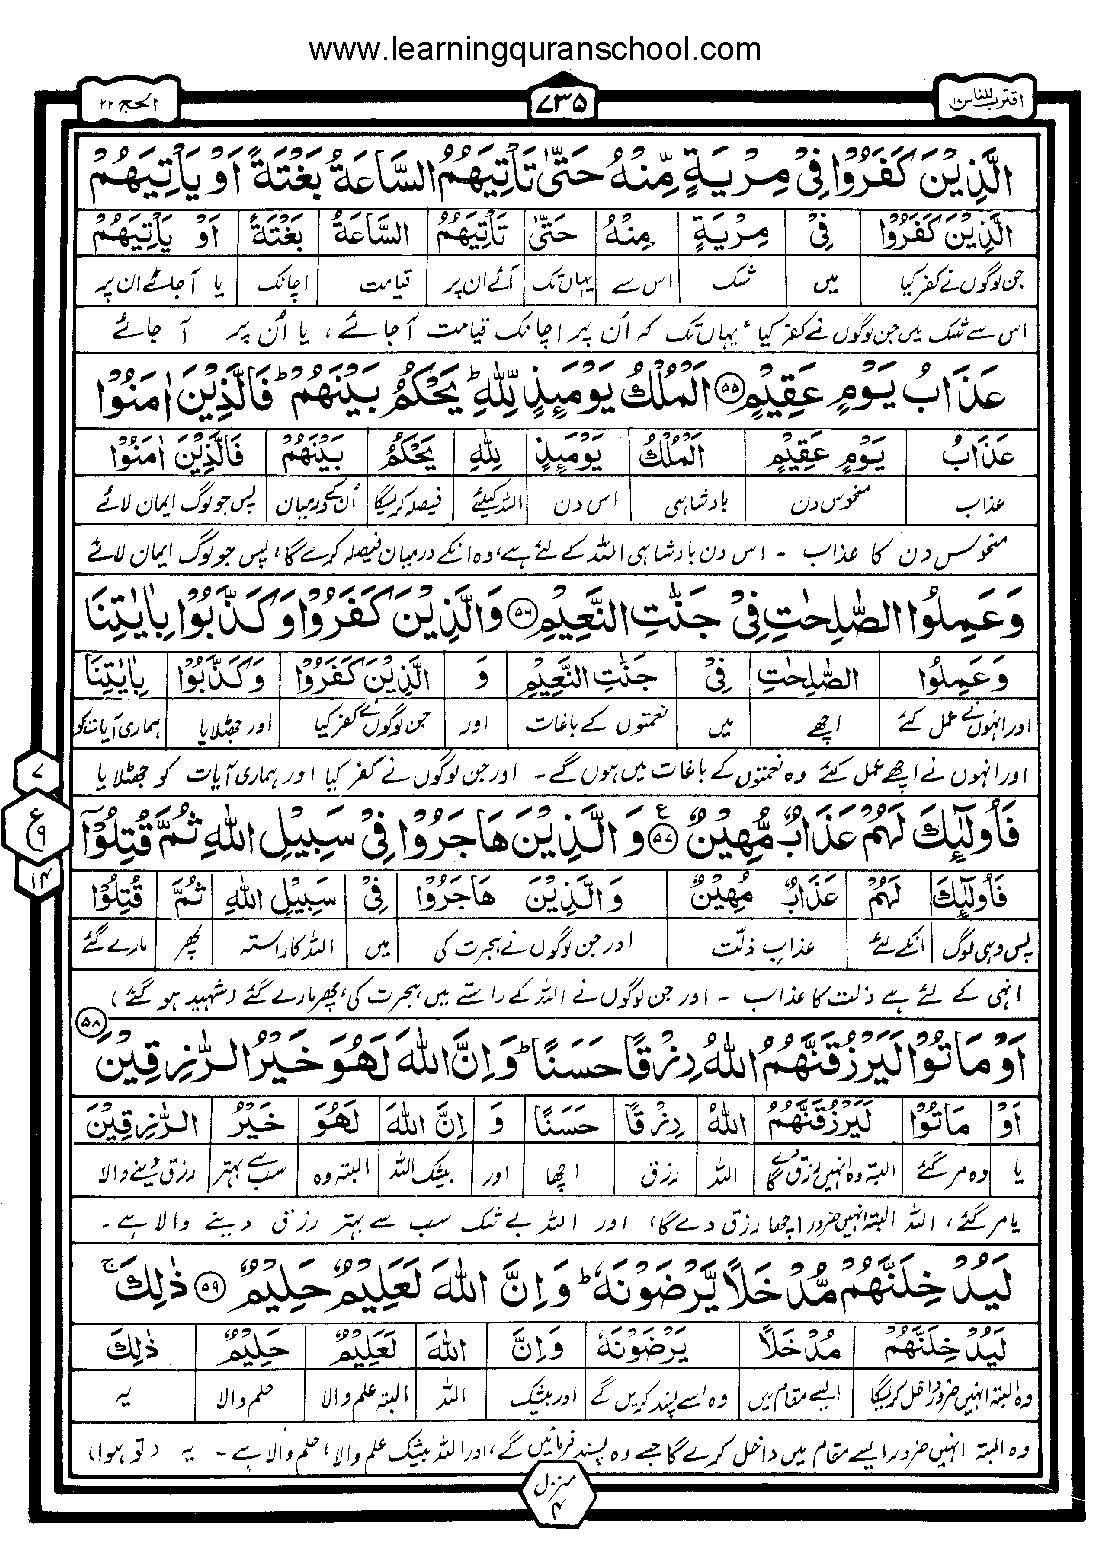 www.learningquranschool.com
اقترب للناس ۱۷
۷۳۵
الحج ۲۲
الَّذِيْنَ كَفَرُوْا فِيْ مِرْيَةٍ مِّنْهُ حَتّٰى تَأْتِيَهُمُ السَّاعَةُ بَغْتَةً اَوْ يَأْتِيَهُمْ
الَّذِيْنَ كَفَرُوْا فِيْ مِرْيَةٍ مِنْهُ حَتّٰى تَأْتِيَهُمُ السَّاعَةُ بَغْتَةً اَوْ يَأْتِيَهُمْ
جن لوگوں نے کفر کیا میں شک اس سے یہاں تک آئے ان پر قیامت اچانک یا آجائے ان پر
اس سے شک میں جن لوگوں نے کفر کیا، یہاں تک کہ اُن پر اچانک قیامت آجائے، یا اُن پر آ جائے
عَذَابُ يَوْمٍ عَقِيْمٍ ۵۵ اَلْمُلْكُ يَوْمَئِذٍ لِّلّٰهِ ؕ يَحْكُمُ بَيْنَهُمْ ؕ فَالَّذِيْنَ اٰمَنُوْا
عَذَابُ يَوْمٍ عَقِيْمٍ اَلْمُلْكُ يَوْمَئِذٍ لِلّٰهِ يَحْكُمُ بَيْنَهُمْ فَالَّذِيْنَ اٰمَنُوْا
عذاب منحوس دن بادشاہی اس دن اللہ کیلئے فیصلہ کریگا اُن کے درمیان پس جو لوگ ایمان لائے
منحوس دن کا عذاب ۔ اس دن بادشاہی اللہ کے لئے ہے، وہ انکے درمیان فیصلہ کرے گا، پس جو لوگ ایمان لائے
وَعَمِلُوا الصّٰلِحٰتِ فِيْ جَنّٰتِ النَّعِيْمِ ۵۶ وَالَّذِيْنَ كَفَرُوْا وَكَذَّبُوْا بِاٰيٰتِنَا
وَعَمِلُوا الصّٰلِحٰتِ فِيْ جَنّٰتِ النَّعِيْمِ وَ الَّذِيْنَ كَفَرُوْا وَكَذَّبُوْا بِاٰيٰتِنَا
اور انہوں نے عمل کئے اچھے میں نعمتوں کے باغات اور جن لوگوں نے کفر کیا اور جھٹلایا ہماری آیات کو
اور انہوں نے اچھے عمل کئے وہ نعمتوں کے باغات میں ہوں گے ۔ اور جن لوگوں نے کفر کیا اور ہماری آیات کو جھٹلایا
۷
ع
۹
۱۴
فَاُولٰٓئِكَ لَهُمْ عَذَابٌ مُّهِيْنٌ ۵۷ وَالَّذِيْنَ هَاجَرُوْا فِيْ سَبِيْلِ اللّٰهِ ثُمَّ قُتِلُوْٓا
فَاُولٰٓئِكَ لَهُمْ عَذَابٌ مُهِيْنٌ وَالَّذِيْنَ هَاجَرُوْا فِيْ سَبِيْلِ اللّٰهِ ثُمَّ قُتِلُوْا
پس وہی لوگ انکے لئے عذابِ ذلت اور جن لوگوں نے ہجرت کی میں اللہ کا راستہ پھر مارے گئے
انہی کے لئے ہے ذلت کا عذاب ۔ اور جن لوگوں نے اللہ کے راستے میں ہجرت کی، پھر مارے گئے (شہید ہو گئے)
اَوْ مَاتُوْا لَيَرْزُقَنَّهُمُ اللّٰهُ رِزْقًا حَسَنًا ؕ وَاِنَّ اللّٰهَ لَهُوَ خَيْرُ الرّٰزِقِيْنَ ۵۸
اَوْ مَاتُوْا لَيَرْزُقَنَّهُمُ اللّٰهُ رِزْقًا حَسَنًا وَ اِنَّ اللّٰهَ لَهُوَ خَيْرُ الرّٰزِقِيْنَ
یا وہ مر گئے البتہ وہ انہیں رزق دے گا اللہ رزق اچھا اور بیشک اللہ البتہ وہ سب سے بہتر رزق دینے والا
یا مر گئے، اللہ البتہ انہیں ضرور اچھا رزق دے گا، اور اللہ بے شک سب سے بہتر رزق دینے والا ہے ۔
لَيُدْخِلَنَّهُمْ مُّدْخَلًا يَّرْضَوْنَهٗ ؕ وَاِنَّ اللّٰهَ لَعَلِيْمٌ حَلِيْمٌ ۵۹ ذٰلِكَ ۚ
لَيُدْخِلَنَّهُمْ مُدْخَلًا يَرْضَوْنَهٗ وَاِنَّ اللّٰهَ لَعَلِيْمٌ حَلِيْمٌ ذٰلِكَ
وہ البتہ انہیں ضرور داخل کریگا ایسے مقام میں وہ اسے پسند کریں گے اور بیشک اللہ البتہ علم والا حلم والا یہ
وہ البتہ انہیں ضرور ایسے مقام میں داخل کرے گا جسے وہ پسند فرمائیں گے، اور اللہ بیشک علم والا، حلم والا ہے ۔ یہ (تو ہوا)
منزل
۴